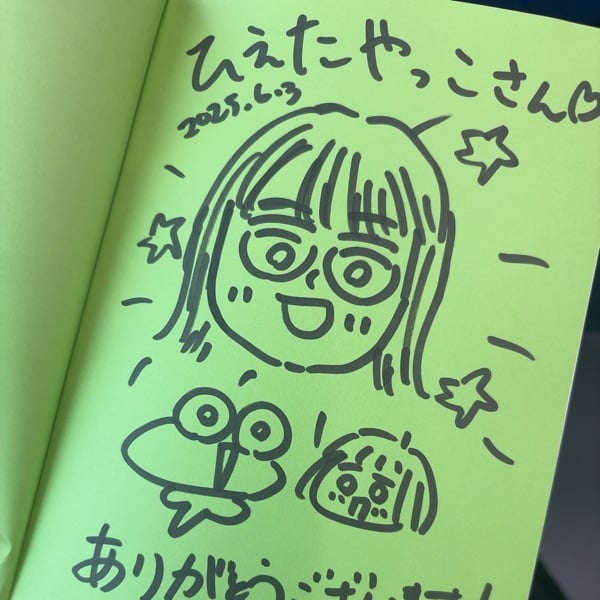 ひえたやっこさん♡
2025.6.3
ありがとうございます!